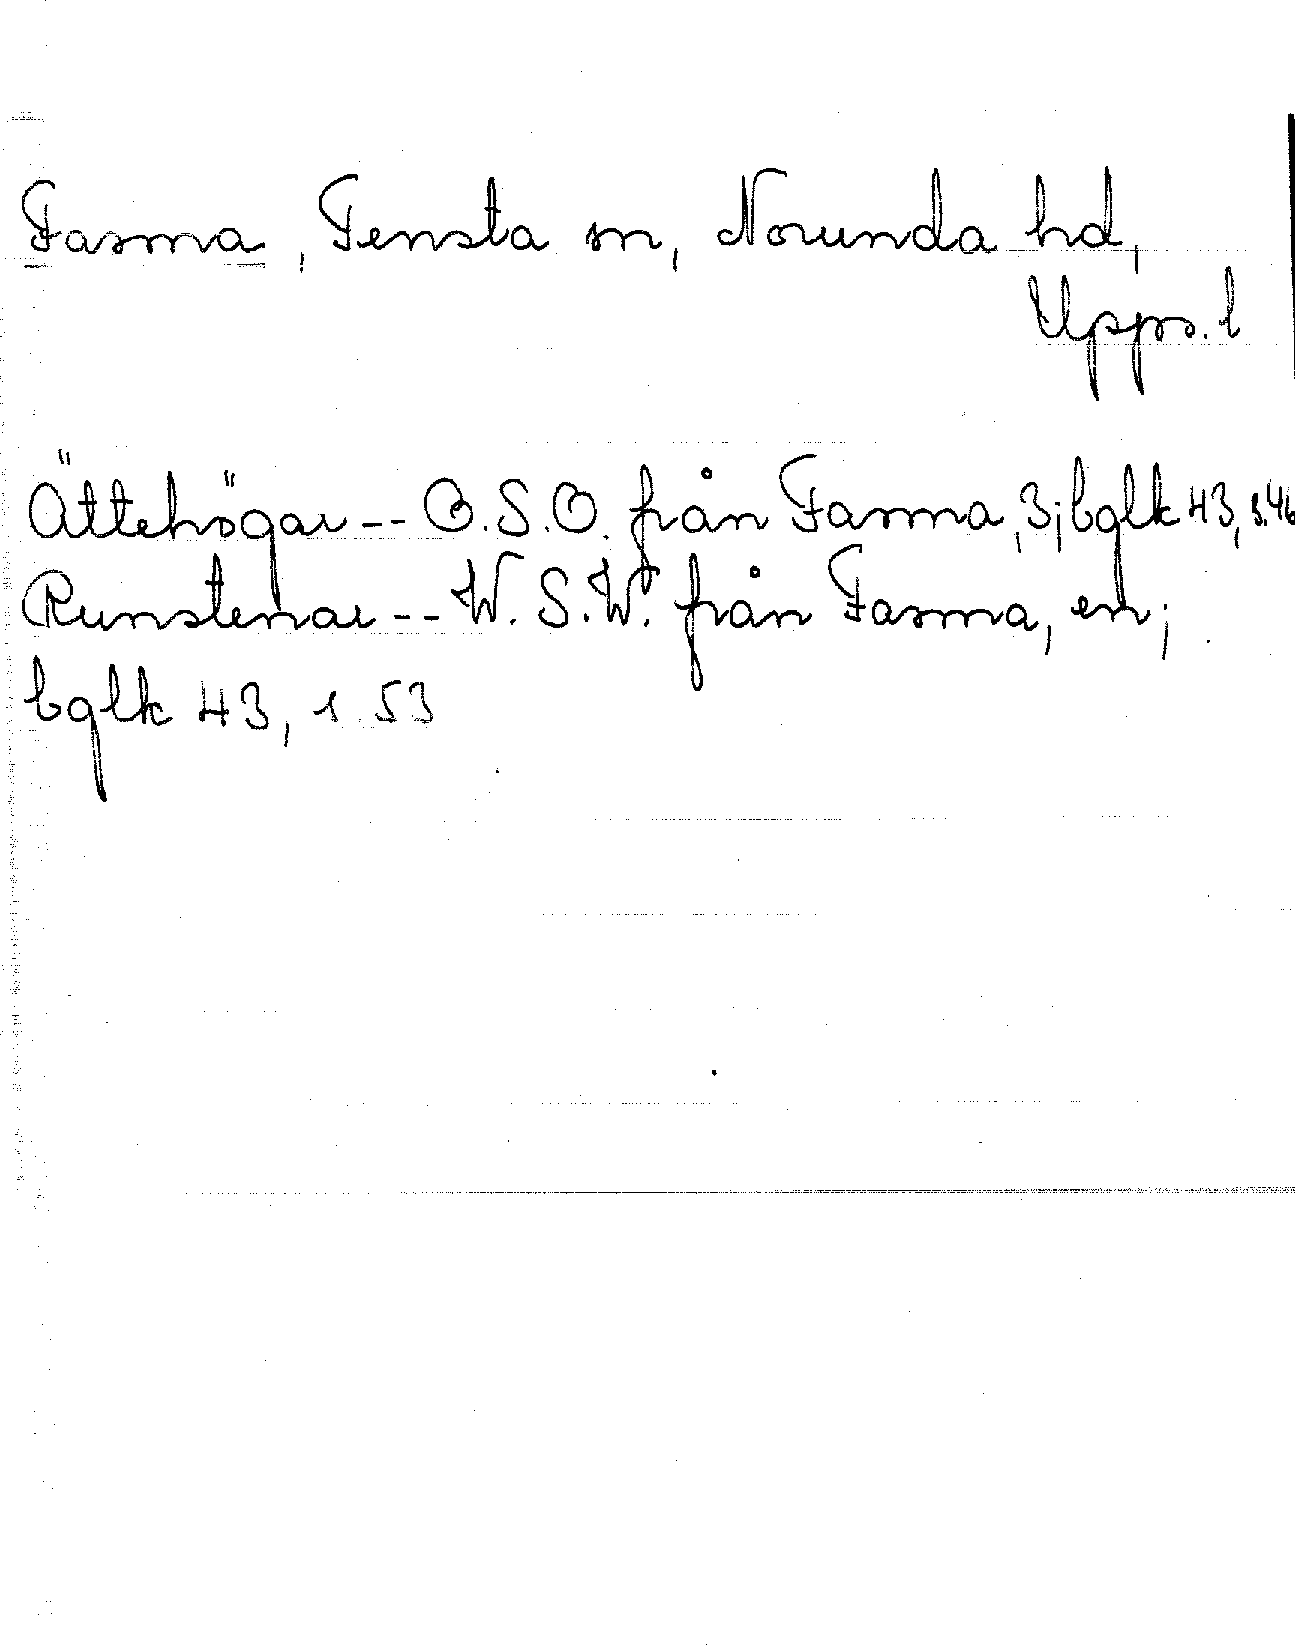 Fasma, Tensta sn, Norunda hd,
Upps. l
Ättehögar -- O.S.O. från Fasma, 3; bglk 43, s. 46
Runstenar -- W.S.W. från Fasma, en;
bglk 43, s 53